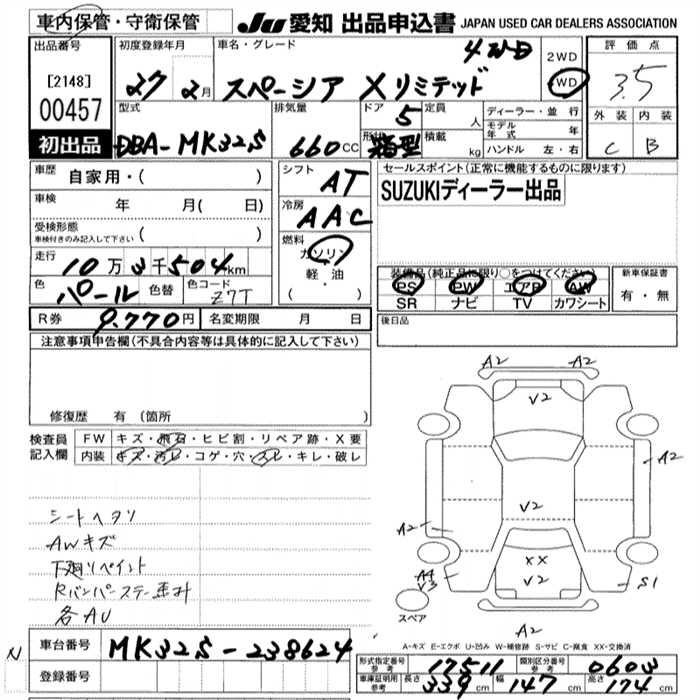 車内保管・守衛保管
JU 愛知 出品申込書 JAPAN USED CAR DEALERS ASSOCIATION
出品番号
[2148]
00457
初出品
初度登録年月
27 2月
車名・グレード
スペーシア Xリミテッド
4WD
2WD
4WD
評価点
3.5
外装 内装
C B
型式
DBA-MK32S
排気量
660 CC
ドア 5
形状 箱型
定員 人
積載 kg
ディーラー・並行
モデル年式 年
ハンドル 左・右
車歴
自家用・( )
車検
年 月( 日)
受検形態
車検付きのみ記入して下さい ( )
走行
10万3千504km
色 パール 色替 色コード Z7T
シフト
AT
冷房
AAC
燃料
ガソリン
軽・油
( )
セールスポイント(正常に機能するものに限ります)
SUZUKIディーラー出品
装備品(純正品に限り○をつけてください)
PS PW エアB AW
SR ナビ TV カワシート
新車保証書
有・無
R券 9.770円 名変期限 月 日
後日品
注意事項申告欄(不具合内容等は具体的に記入して下さい)
修復歴 有(箇所 )
検査員記入欄
FW キズ・飛石・ヒビ割・リペア跡・X要
内装 キズ・汚レ・コゲ・穴・スレ・キレ・破レ
シートヘタリ
AWキズ
下廻りペイント
Rバンパーステー
各AU
A2
V2
A2
V2
A2
XX
V2
A4
V3
S1
スペア
A2
A-キズ E-エクボ U-凹み W-補修跡 S-サビ C-腐食 XX-交換済
N
車台番号 MK32S-238624
登録番号
形式指定番号 参考 17511 類別区分番号 参考 0603
車庫証明用 参考 長さ 339cm 幅 147cm 高さ 174cm